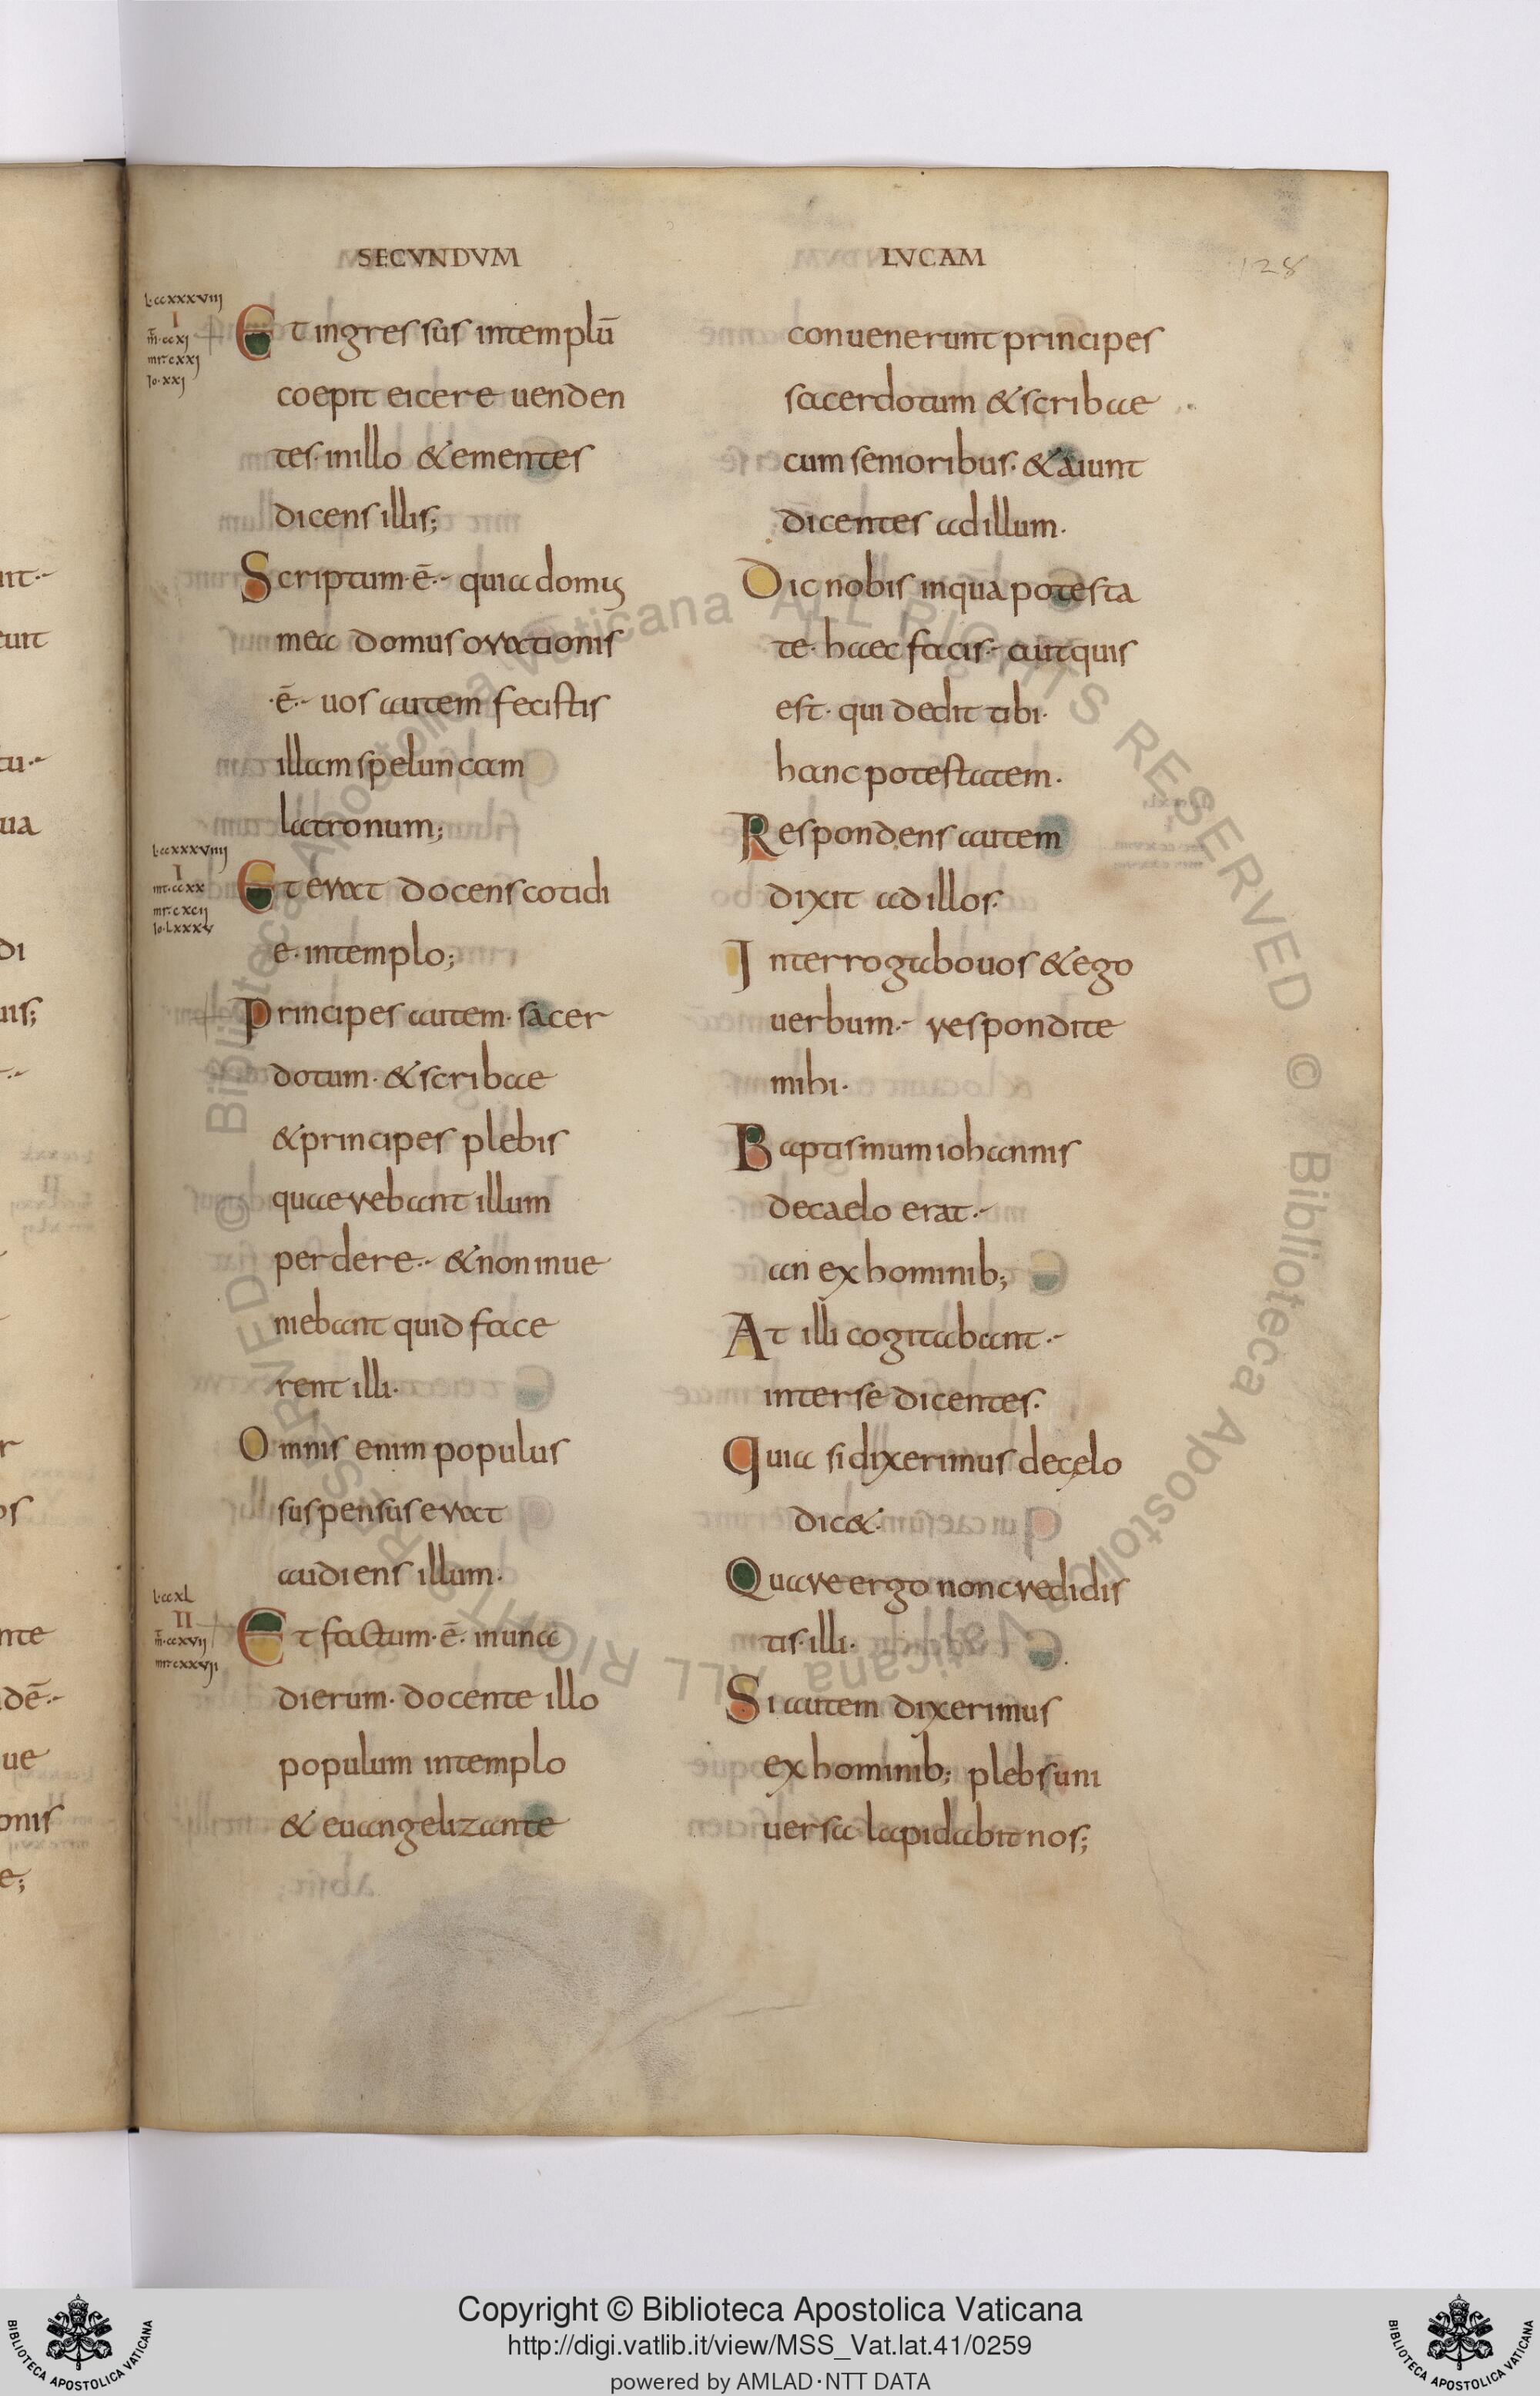 SECVNDVM
L·ccxxxviiij
I
m̄·ccxj
mr·cxxj
Io·xxj
Et ingressus intemplū
coepit eicere uenden
tes·inillo &ementes
dicens illis;
Scriptum·ē·- quia domus
mea domus orationis
·ē·- uos autem fecistis
illam speluncam
latronum;
L·ccxxxviiij
I
mt·ccxx
mr·cxcij
Io·Lxxxv
Et erat docens cotidi
e·intemplo;
Principes autem·sacer
dotum·&scribae
&principes plebis
quaerebant illum
perdere·- &noninue
niebant quid face
rent illi·
Omnis enim populus
suspensus erat
audiens illum·
L·ccxL
II
m̄·ccxvij
mr·cxxvij
Et factum·ē·inuna
dierum·docente illo
populum intemplo
& euangelizante
LVCAM
128
conuenerunt principes
sacerdotum &scribae
cum senioribus·&aiunt
dicentes adillum·
Dic nobis inqua potesta
te·haec facis·- autquis
est·qui dedit tibi·
hanc potestatem·
Respondens autem
dixit adillos·
Interrogabo uos &ego
uerbum·- respondite
mihi·
Baptismum iohannis
decaelo erat·-
an ex hominib;
At illi cogitabant·-
interse dicentes·
Quia si dixerimus decęlo
dic&·
Quare ergo noncredidis
tis·illi·
Si autem dixerimus
ex hominib; plebs uni
uersa lapidabit nos;
Copyright © Biblioteca Apostolica Vaticana
http://digi.vatlib.it/view/MSS_Vat.lat.41/0259
powered by AMLAD·NTT DATA